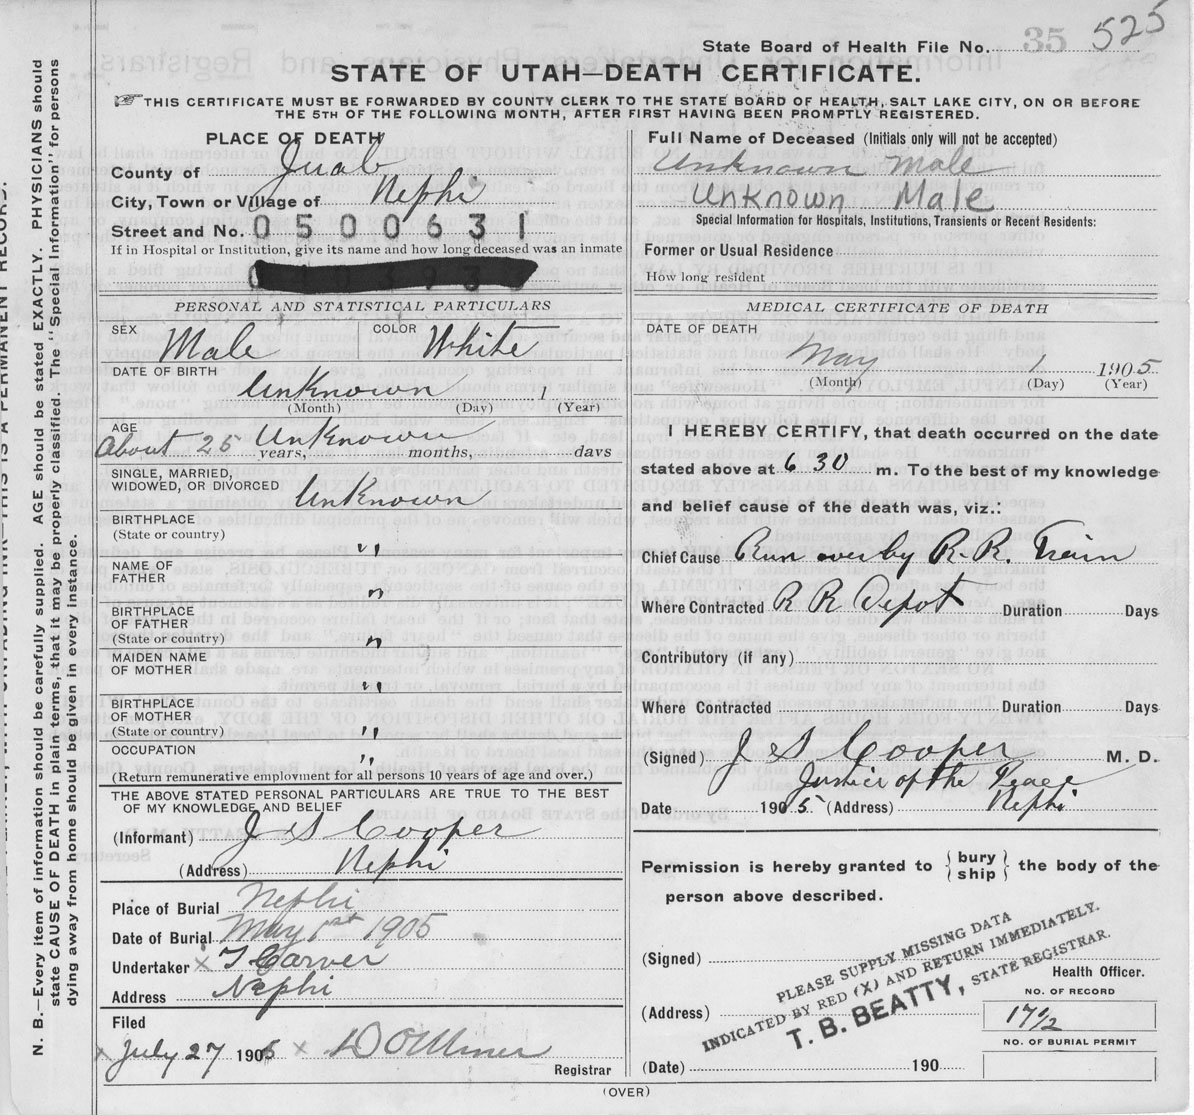 State Board of Health File No. 35 525
STATE OF UTAH—DEATH CERTIFICATE.
THIS CERTIFICATE MUST BE FORWARDED BY COUNTY CLERK TO THE STATE BOARD OF HEALTH, SALT LAKE CITY, ON OR BEFORE
THE 5TH OF THE FOLLOWING MONTH, AFTER FIRST HAVING BEEN PROMPTLY REGISTERED.
PLACE OF DEATH
County of Juab
City, Town or Village of Nephi
Street and No. 0500631
If in Hospital or Institution, give its name and how long deceased was an inmate
PERSONAL AND STATISTICAL PARTICULARS
SEX Male COLOR White
DATE OF BIRTH Unknown 1
(Month) (Day) (Year)
AGE
About 25 Unknown
years, months, days
SINGLE, MARRIED,
WIDOWED, OR DIVORCED Unknown
BIRTHPLACE
(State or country) "
NAME OF
FATHER "
BIRTHPLACE
OF FATHER
(State or country) "
MAIDEN NAME
OF MOTHER "
BIRTHPLACE
OF MOTHER
(State or country) "
OCCUPATION "
(Return remunerative employment for all persons 10 years of age and over.)
THE ABOVE STATED PERSONAL PARTICULARS ARE TRUE TO THE BEST
OF MY KNOWLEDGE AND BELIEF
(Informant) J S Cooper
(Address) Nephi
Place of Burial Nephi
Date of Burial May 1st 1905
Undertaker x T Carver
Address Nephi
Filed
x July 27 1905 x
Registrar
Full Name of Deceased (Initials only will not be accepted)
Unknown Male
Unknown Male
Special Information for Hospitals, Institutions, Transients or Recent Residents:
Former or Usual Residence
How long resident
MEDICAL CERTIFICATE OF DEATH
DATE OF DEATH
May 1 1905
(Month) (Day) (Year)
I HEREBY CERTIFY, that death occurred on the date
stated above at 6 30 m. To the best of my knowledge
and belief cause of the death was, viz.:
Chief Cause Run over by R. R. Train
Where Contracted R R Depot Duration Days
Contributory (if any)
Where Contracted Duration Days
(Signed) J S Cooper M. D.
Justice of the Peace
Date 1905 (Address) Nephi
Permission is hereby granted to { bury ship } the body of the
person above described.
(Signed)
Health Officer.
(Address)
(Date) 190
PLEASE SUPPLY MISSING DATA
INDICATED BY RED (X) AND RETURN IMMEDIATELY.
T. B. BEATTY, STATE REGISTRAR.
NO. OF RECORD
17 1/2
NO. OF BURIAL PERMIT
(OVER)
N. B.—Every item of information should be carefully supplied. AGE should be stated EXACTLY. PHYSICIANS should
state CAUSE OF DEATH in plain terms, that it may be properly classified. The "Special Information" for persons
dying away from home should be given in every instance.